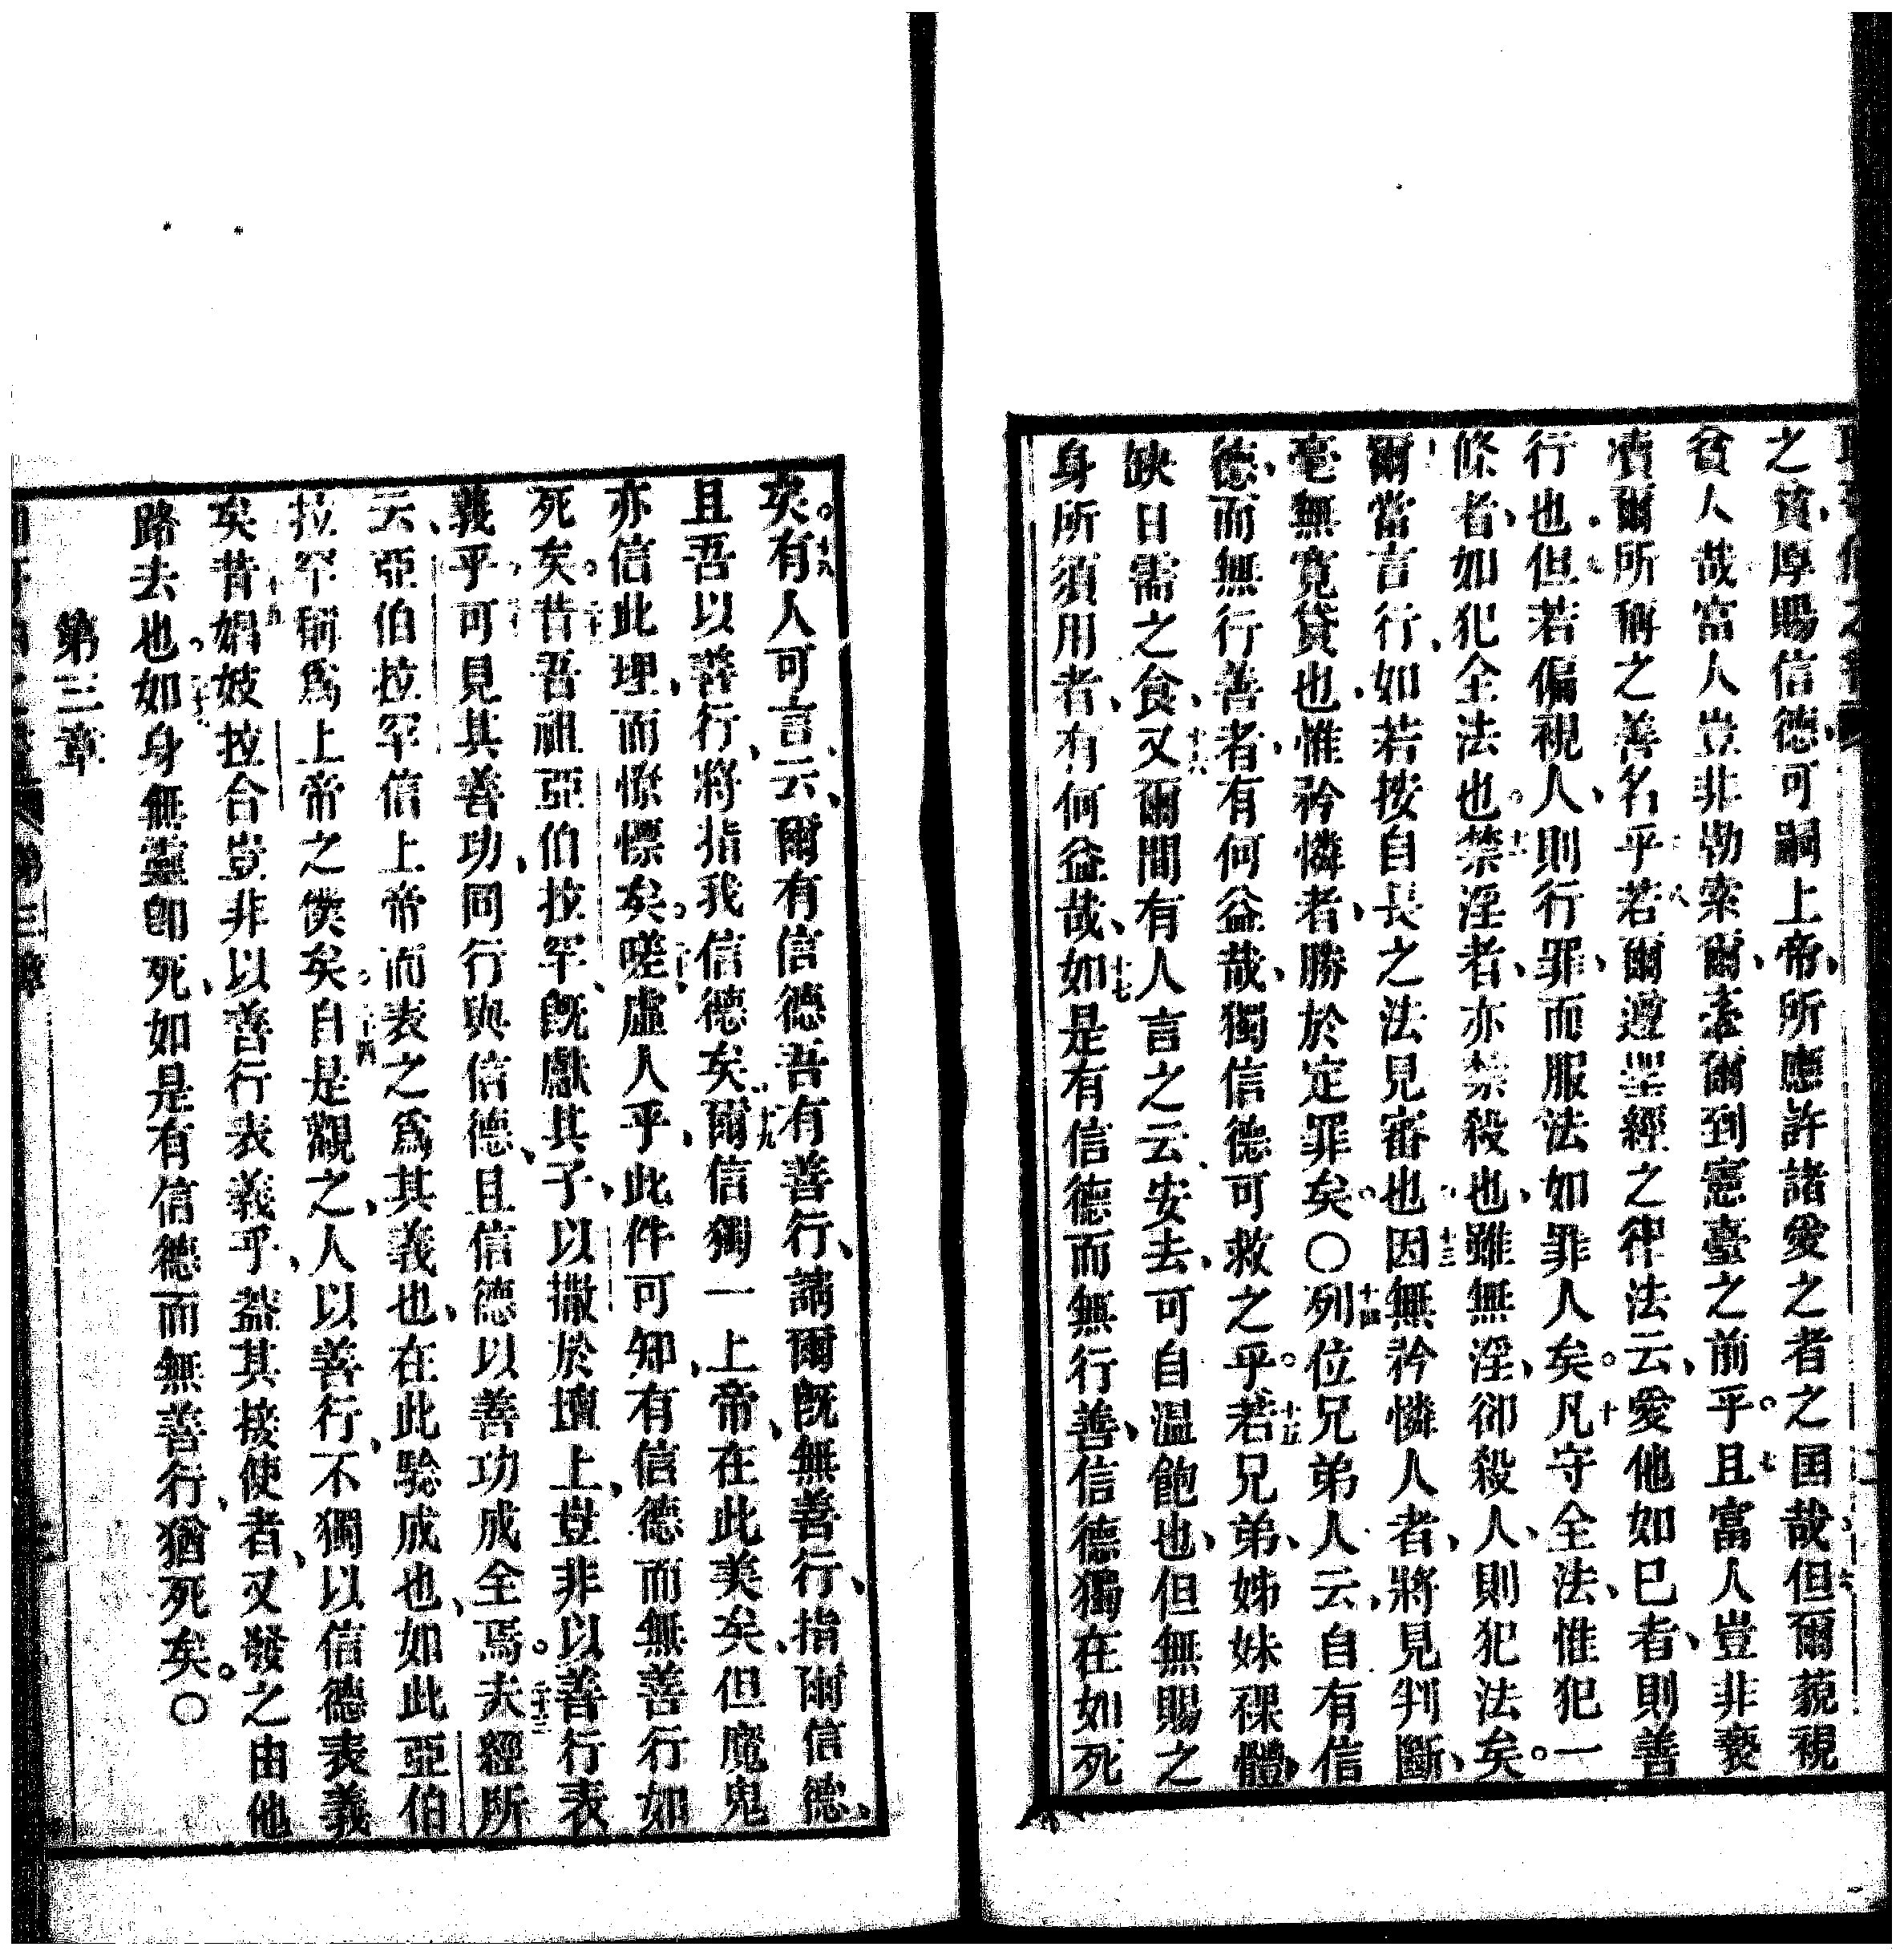 之貧、厚賜信德可嗣上帝、所應許諸愛之者之囯哉。但爾藐視
貧人哉富人豈非勒索爾、牽爾到憲臺之前乎。且富人豈非褻
瀆爾所稱之善名乎若爾遵聖經之律法云、愛他如己者、則善
行也。但若偏視人、則行罪、而服法如罪人矣。凡守全法、惟犯一
條者、如犯全法也。禁淫者、亦禁殺也、雖無淫、卻殺人、則犯法矣。
爾當言行、如若按自長之法見審也。因無矜憐人者、將見判斷、
毫無寬貸也、惟矜憐者、勝於定罪矣。〇列位兄弟人云、自有信
德、而無行善者、有何益哉、獨信德可救之乎。若兄弟、姊妹祼體、
缺日需之食、又爾間有人言之云、安去、可自溫飽也、但無賜之
身所須用者、有何益哉、如是有信德而無行善、信德獨在如死
矣。有人可言云、爾有信德吾有善行、請爾既無善行、指爾信德、
且吾以善行、將指我信德矣。爾信獨一上帝、在此美矣、但魔鬼
亦信此理、而慄慄矣。嗟虛人乎、此件可知、有信德而無善行如
死矣。昔吾祖亞伯拉罕、既獻其子、以撒於壇上、豈非以善行表
義乎、可見其善功、同行與信德、且信德以善功成全焉。夫經所
云、亞伯拉罕信上帝而表之爲其義也、在此騐成也、如此亞伯
拉罕稱爲上帝之僕矣。自是觀之、人以善行、不獨以信德表義
矣昔娼妓拉合豈非以善行表義乎、葢其接使者、又發之由他
路去也。如身無靈卽死、如是有信德而無善行、猶死矣。〇
第三章